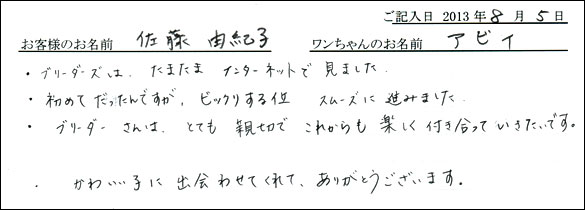 ご記入日 2013年 8月 5日
お客様のお名前 佐藤 由紀子 ワンちゃんのお名前 アビイ
・ブリーダーズは、たまたま インターネットで 見ました.
・初めてだったんですが、ビックリする位 スムーズに 進みました.
・ブリーダーさんは、とても 親切で これからも 楽しく 付き合って いきたいです。
・かわいい子に 出会わせてくれて、ありがとうございます。